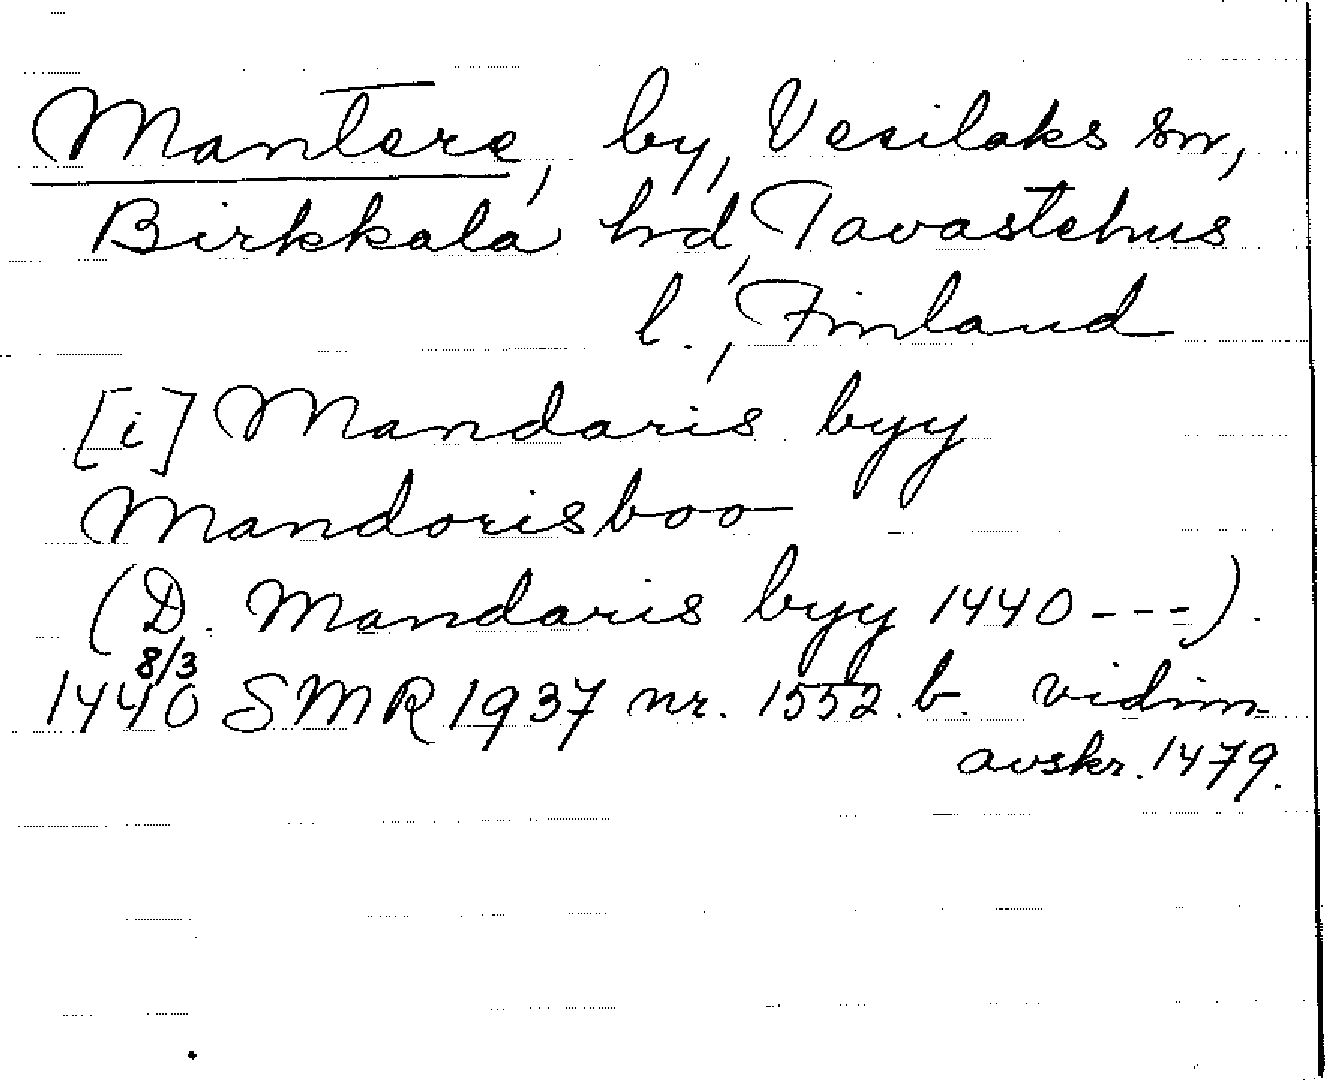 Mantere, by, Vesilaks sn,
Birkkala hd, Tavastehus
l., Finland
[i] Mandaris byy
Mandorisboo
(D. Mandaris byy 1440 - - -).
1440 8/3 SMR 1937 nr. 1552.b. vidim
avskr. 1479.